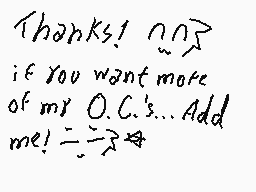 Thanks!
if you want more
of my O.C.'s... Add
me!